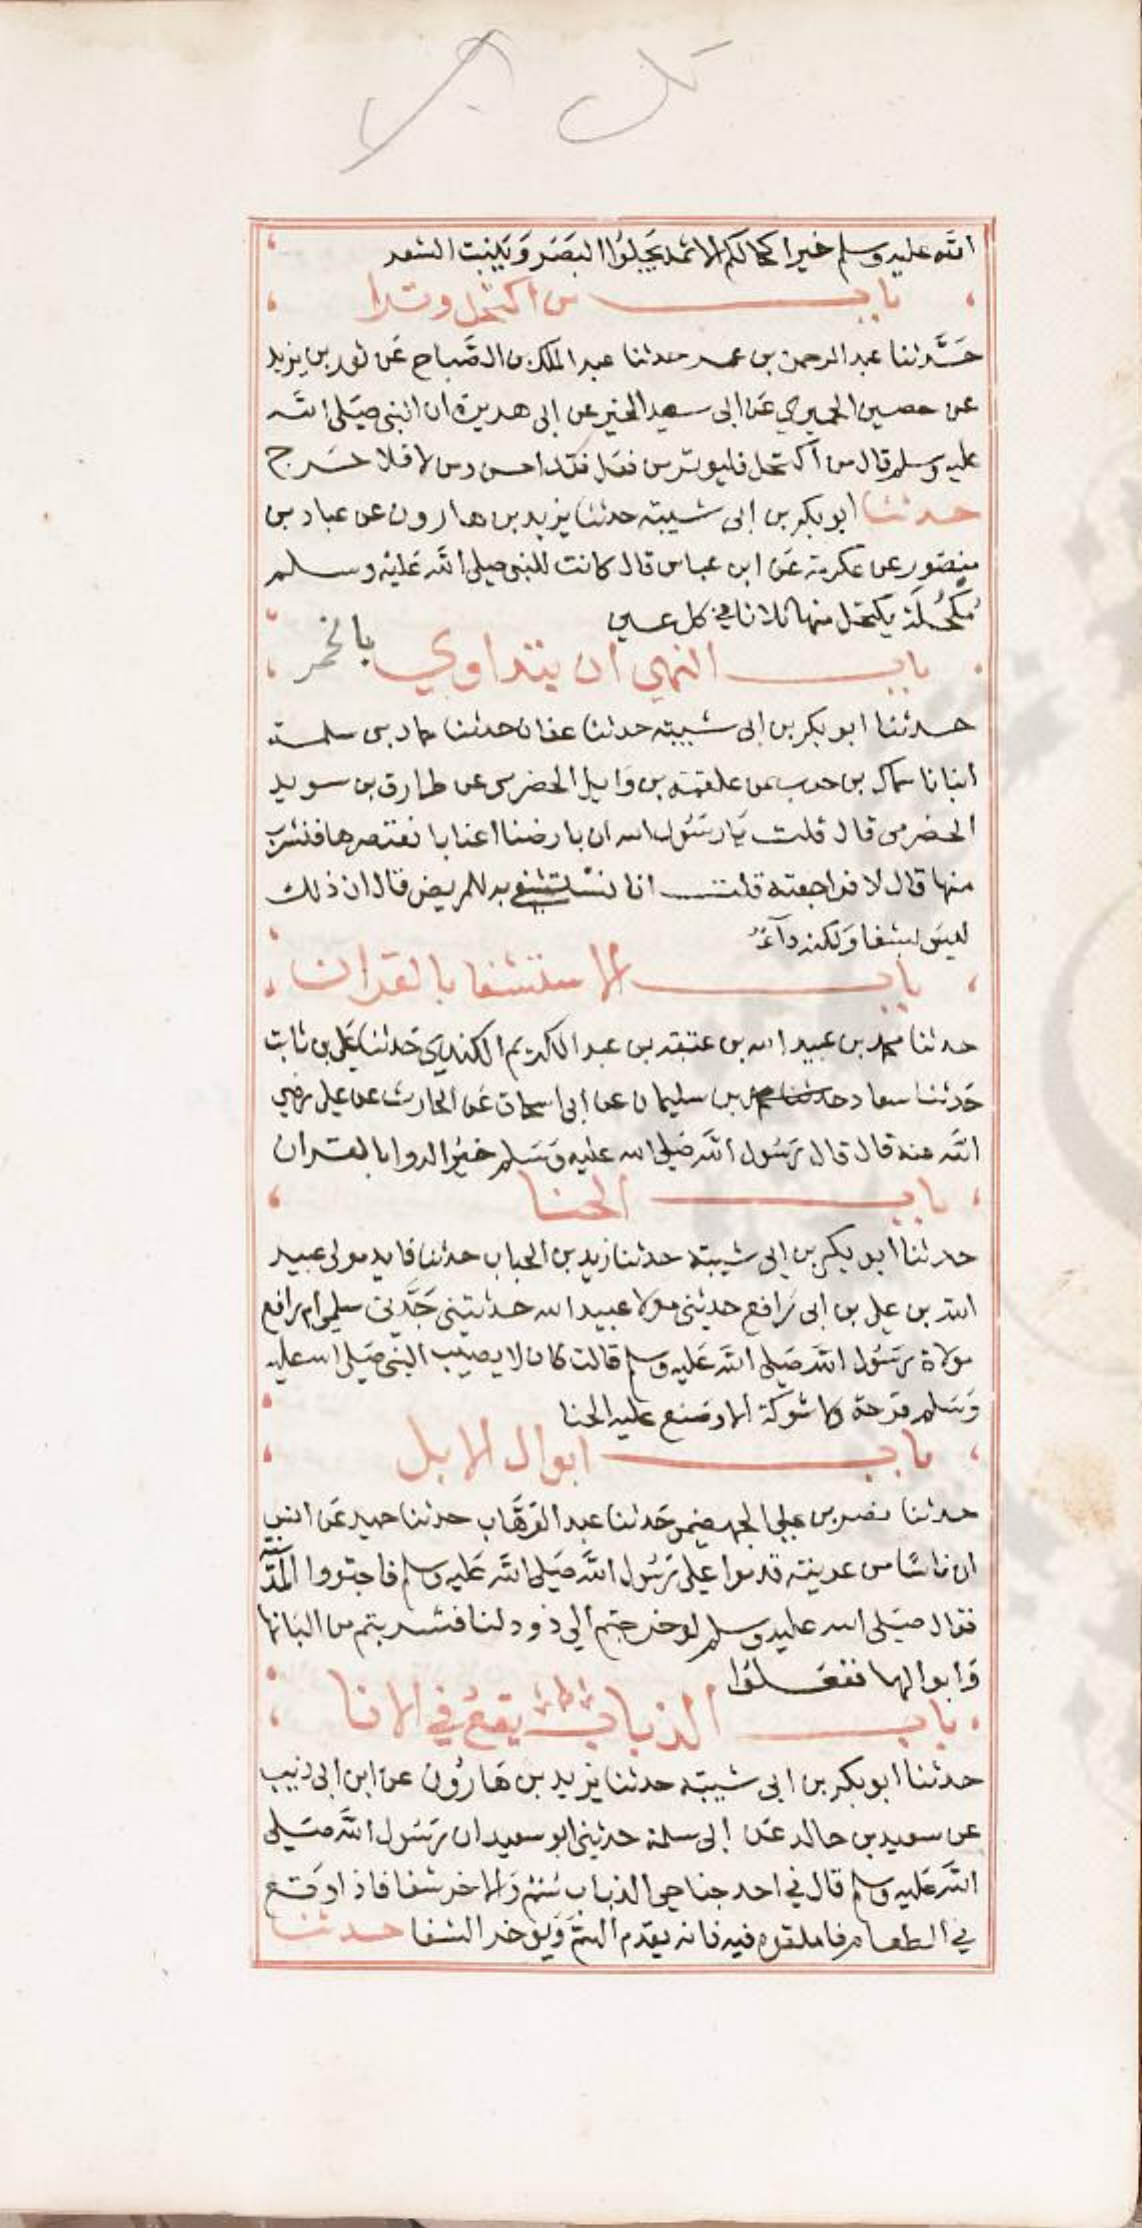 الله عليه وسلم خير اكحالكم الاثمد يجلوا البصر وينبت الشعر
باب من اكتحل وترا
حدثنا عبد الرحمن بن عمر حدثنا عبد الملك بن الصباح عن ثور بن يزيد
عن حصين الحميري عن ابى سعيد الخير عن ابى هريرة ان النبي صلى الله
عليه وسلم قال من اكتحل فليوتر من فعل فقد احسن ومن لا فلا حرج
حدثنا ابو بكر بن ابى شيبة حدثنا يزيد بن هارون عن عباد بن
منصور عن عكرمة عن ابن عباس قال كانت للنبي صلى الله عليه وسلم
مكحلة يكتحل منها ثلاثا في كل عين
باب النهي ان يتداوي بالخمر
حدثنا ابو بكر بن ابى شيبة حدثنا عفان حدثنا حماد بن سلمة
انبانا سماك بن حرب عن علقمة بن وايل الحضرمى عن طارق بن سويد
الحضرمى قال قلت يا رسول الله ان بارضنا اعنابا نعتصرها فنشرب
منها قال لا فراجعته قلت انا نستشفي به للمريض قال ان ذلك
ليس بشفا ولكنه داء
باب الاستشفا بالقران
حدثنا محمد بن عبيد الله بن عتبة بن عبد الكريم الكندي حدثنا علي بن ثابت
حدثنا سعاد بن سليمان عن ابى اسحاق عن الحارث عن علي رضي
الله عنه قال قال رسول الله صلى الله عليه وسلم خير الدوا بالقران
باب الحنا
حدثنا ابو بكر بن ابى شيبة حدثنا زيد بن الحباب حدثنا فايد مولى عبيد
الله بن علي بن ابى رافع حدثني مولا عبيد الله حدثتني جدتي سلمى ام رافع
مولاة رسول الله صلى الله عليه وسلم قالت كان لا يصيب النبي صلى الله عليه
وسلم قرحة ولا شوكة الا وضع عليه الحنا
باب ابوال الابل
حدثنا نصر بن علي الجهضمي حدثنا عبد الوهاب حدثنا حميد عن انس
ان ناسا من عرينة قدموا على رسول الله صلى الله عليه وسلم فاجتووا المدينة
فقال صلى الله عليه وسلم لو خرجتم الي ذود لنا فشربتم من البانها
وابوالها ففعلوا
باب الذباب يقع في الانا
حدثنا ابو بكر بن ابى شيبة حدثنا يزيد بن هارون عن ابن ابى ذيب
عن سعيد بن خالد عن ابى سلمة حدثني ابو سعيد ان رسول الله صلى
الله عليه وسلم قال في احد جناحي الذباب سم والاخر شفا فاذا وقع
في الطعام فاملقوه فيه فانه يقدم السم ويوخر الشفا حدثنا